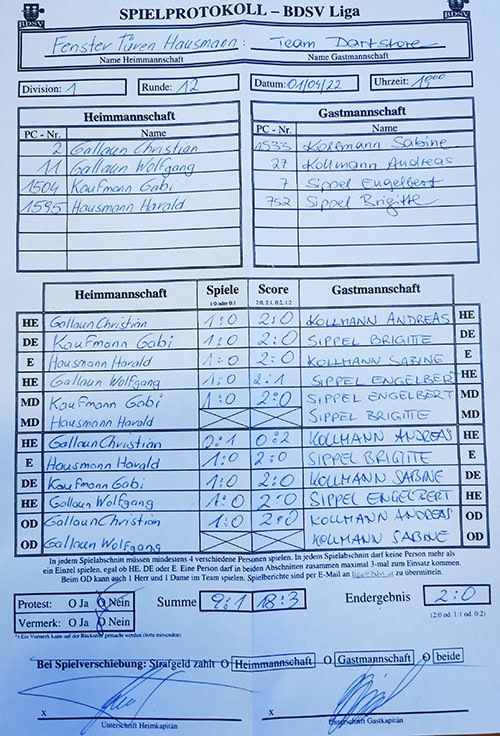 BDSV SPIELPROTOKOLL – BDSV Liga BDSV
Fenster Türen Hausmann : Team Dartstore
Name Heimmannschaft Name Gastmannschaft
Division: 1 Runde: 12 Datum: 01/04/22 Uhrzeit: 1900
Heimmannschaft Gastmannschaft
PC - Nr. Name PC - Nr. Name
2 Gallaun Christian 1533 Kollmann Sabine
11 Gallaun Wolfgang 27 Kollmann Andreas
1504 Kaufmann Gabi 7 Sippel Engelbert
1595 Hausmann Harald 752 Sippel Brigitte
Heimmannschaft Spiele Score Gastmannschaft
1:0 oder 0:1 2:0, 2:1, 0:2, 1:2
HE Gallaun Christian 1:0 2:0 KOLLMANN ANDREAS HE
DE Kaufmann Gabi 1:0 2:0 SIPPEL BRIGITTE DE
E Hausmann Harald 1:0 2:0 KOLLMANN SABINE E
HE Gallaun Wolfgang 1:0 2:1 SIPPEL ENGELBERT HE
MD Kaufmann Gabi 1:0 2:0 SIPPEL ENGELBERT MD
MD Hausmann Harald SIPPEL BRIGITTE MD
HE Gallaun Christian 0:1 0:2 KOLLMANN ANDREAS HE
E Hausmann Harald 1:0 2:0 SIPPEL BRIGITTE E
DE Kaufmann Gabi 1:0 2:0 KOLLMANN SABINE DE
HE Gallaun Wolfgang 1:0 2:0 SIPPEL ENGELBERT HE
OD Gallaun Christian 1:0 2:0 KOLLMANN ANDREAS OD
OD Gallaun Wolfgang KOLLMANN SABINE OD
In jedem Spielabschnitt müssen mindestens 4 verschiedene Personen spielen. In jedem Spielabschnitt darf keine Person mehr als
ein Einzel spielen, egal ob HE, DE oder E. Eine Person darf in beiden Abschnitten zusammen maximal 3-mal zum Einsatz kommen.
Beim OD kann auch 1 Herr und 1 Dame im Team spielen. Spielberichte sind per E-Mail an zu übermitteln.
Protest: O Ja O Nein Summe 9:1 18:3 Endergebnis 2:0
Vermerk: O Ja O Nein (2:0 od. 1:1 od. 0:2)
*) Ein Vermerk kann auf der Rückseite gemacht werden (bitte mitsenden)
Bei Spielverschiebung: Strafgeld zahlt O Heimmannschaft O Gastmannschaft O beide
x x
Unterschrift Heimkapitän Unterschrift Gastkapitän